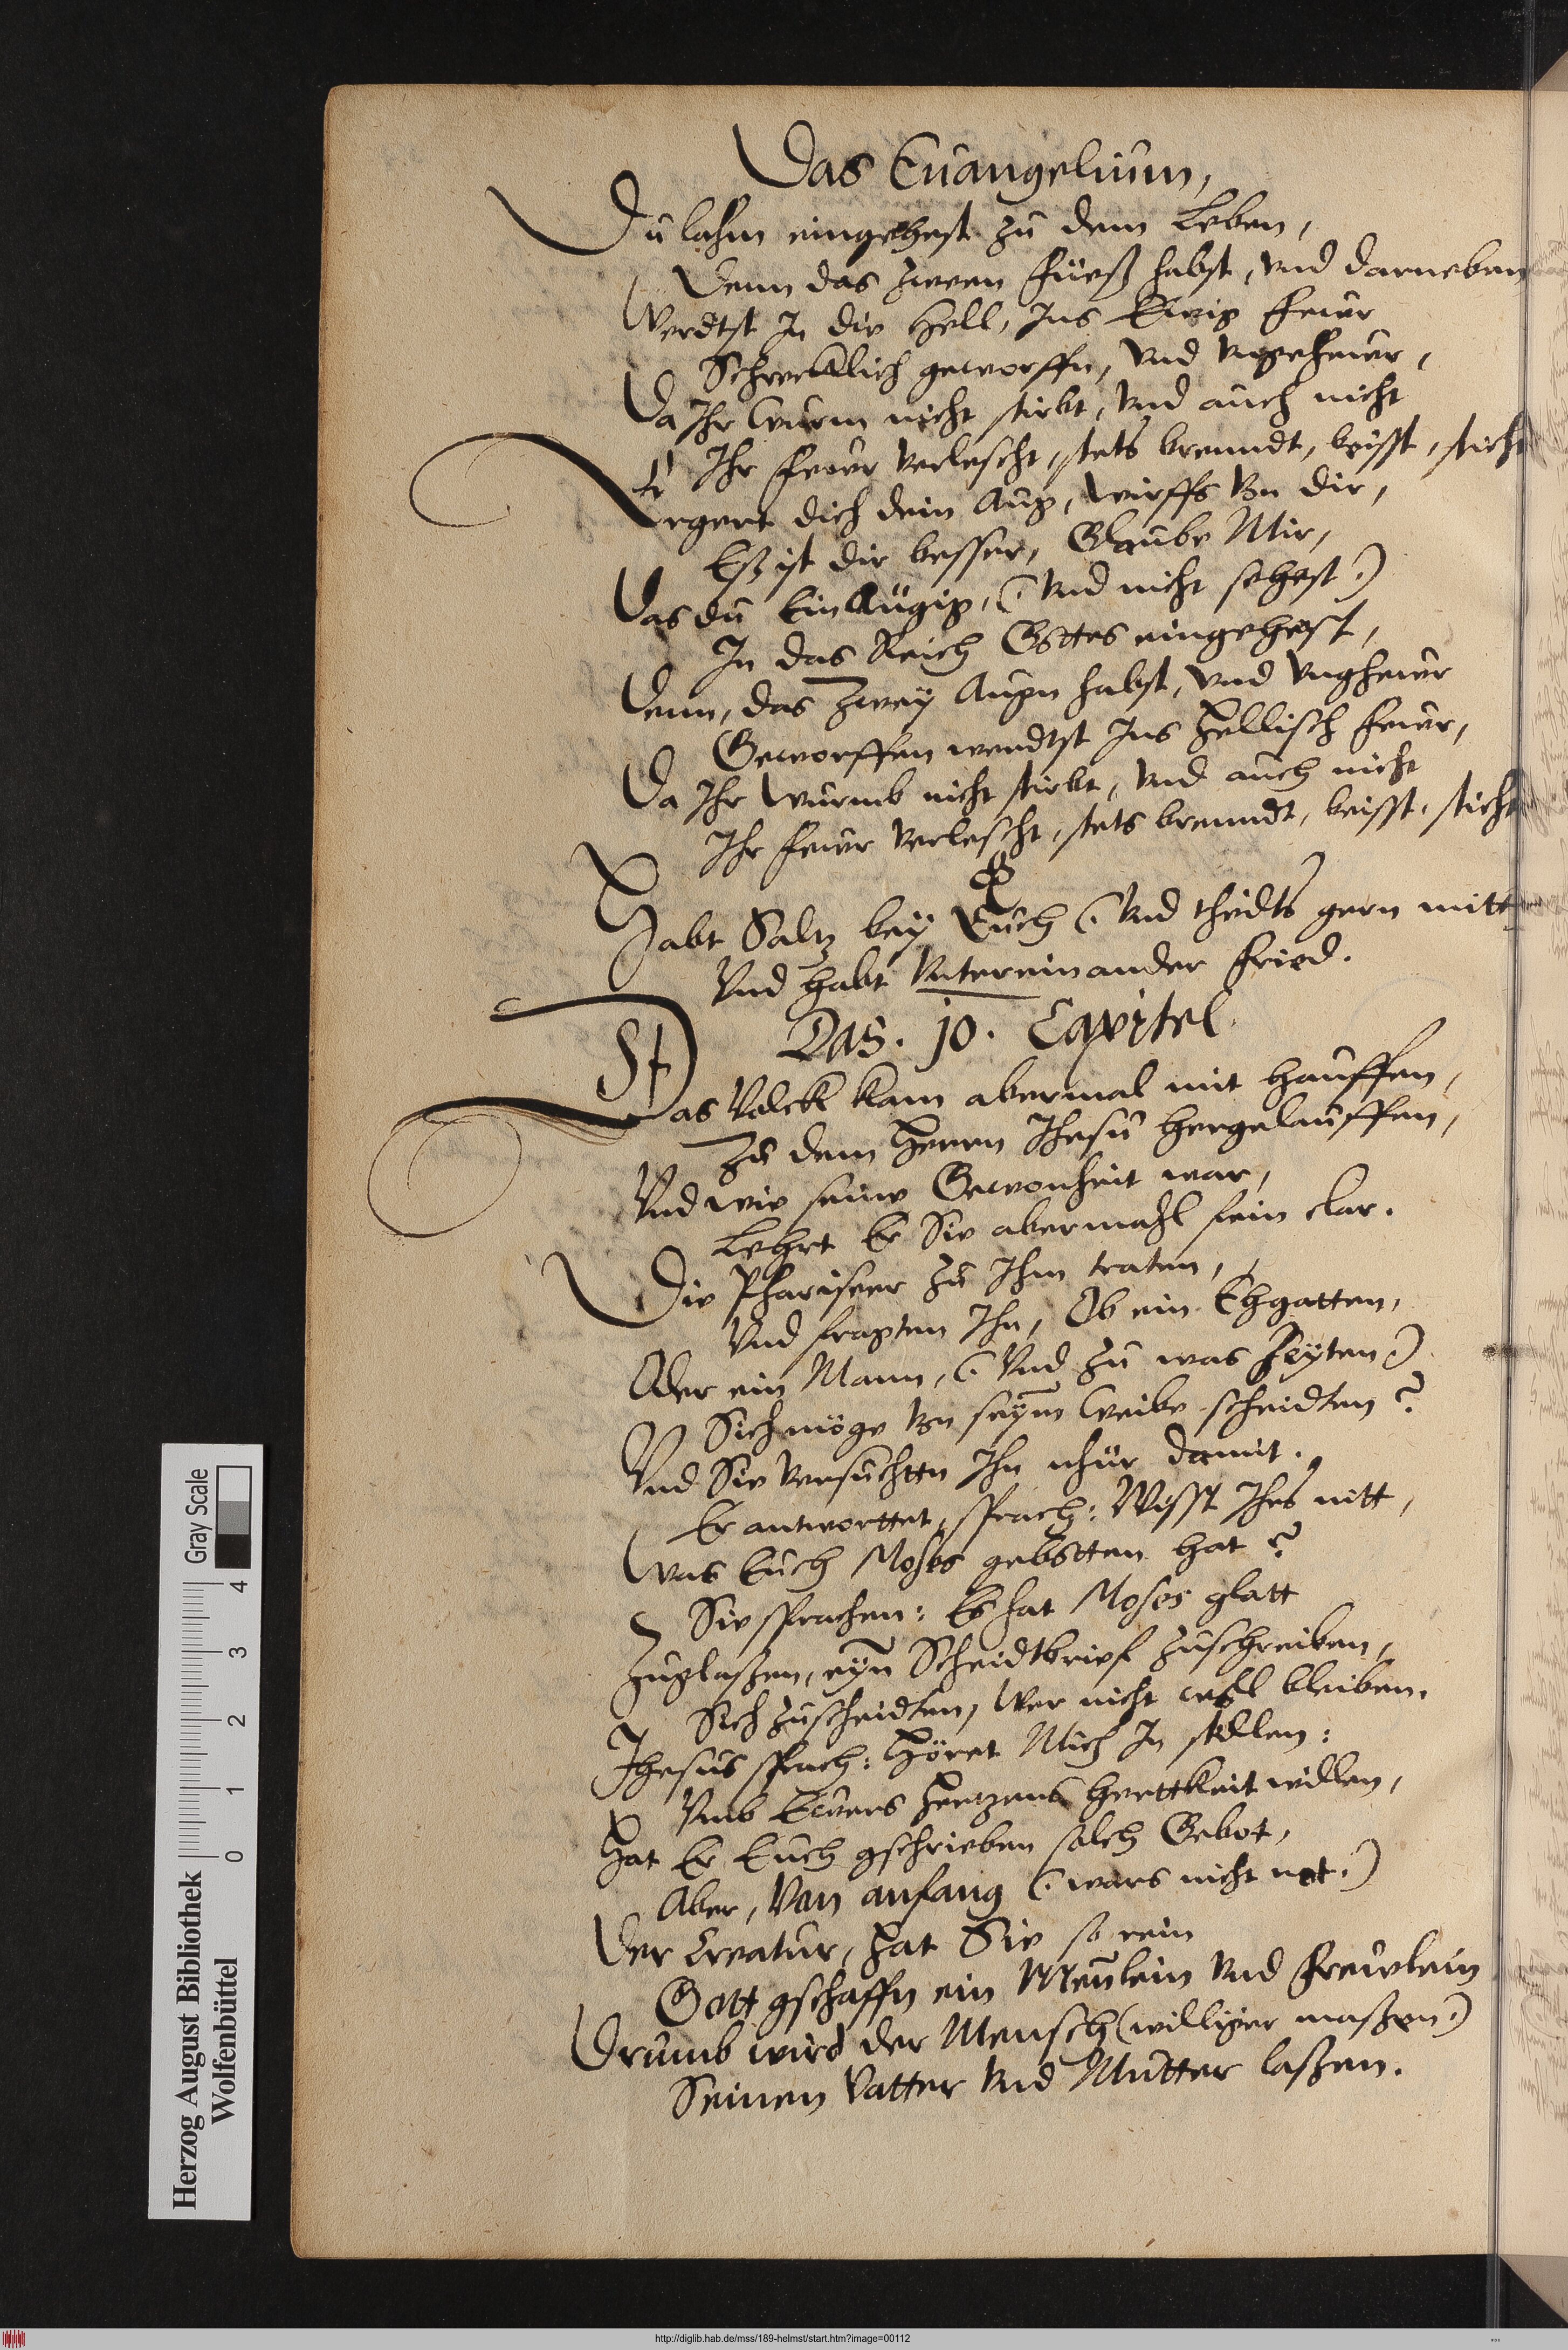 Das Euangelium,
Du lahm eingehest zu dem Leben,
Denn das zween Füeß habst, vnd darneben
Werdtst In die Hell, Ins Ewig Feuer
Schrecklich geworffn, vnd vngeheuer,
Da Ihr Wurm nicht stirbt, vnd auch nicht
Ihr Feuer verlescht, stets brenndt, beisst, sticht
Ergert dich dein Aug, wirffs von dir,
Eß ist dir besser, Glaube Mir,
Das du Einäugig, (vnd nicht sehest)
In das Reich Gottes eingehest,
Denn, das zwey Augen habst, vnd vngheuer
Geworffen werdtst Ins Hellisch Feuer,
Da Ihr Wurmb nicht stirbt, vnd auch nicht
Ihr Feuer verlescht, stets brenndt, beisst, sticht
Habt Saltz bey Euch (vnd theilts gern mitt
Vnd habt Vntereinander Fried.
Das. 10. Capitel
Das Volck kam abermal mit Hauffen,
Zu dem Herrn Jhesu hergelauffen,
Vnd wie seine Gewonheit war,
Lehrt Er Sie abermahl fein clar.
Die Phariseer zu Ihm traten,
Vnd fragten Ihn, Ob ein Ehgatten,
Oder ein Mann, (Vnd zu was Zeyten)
Sich möge von seym Weibe scheidten?
Vnd Sie versuchten Ihn nhur damit.
Er antworttet, sprach: Wisst Ihrs nitt,
Was Euch Moses gebotten hat?
Sie sprachen: Es hat Moses glatt
Zuglaßen, eyn Scheidtbrief zuschreiben,
Sich zuscheidten, Wer nicht woll bleiben.
Jhesus sprach: Höret Mich In stillen:
Vmb Ewers Hertzens herttkeit willen,
Hat Er Euch gschrieben solch Gebot,
Aber, Von anfang (wars nicht not.)
Der Creatur, hat Sie so rein
Gott gschaffn ein Menlein vnd Frewlein
Drumb wird der Mensch (williger maßen)
Seinen Vatter vnd Mutter laßen.
Herzog August Bibliothek
Wolfenbüttel
0 1 2 3 4
Gray Scale
http://diglib.hab.de/mss/189-helmst/start.htm?image=00112